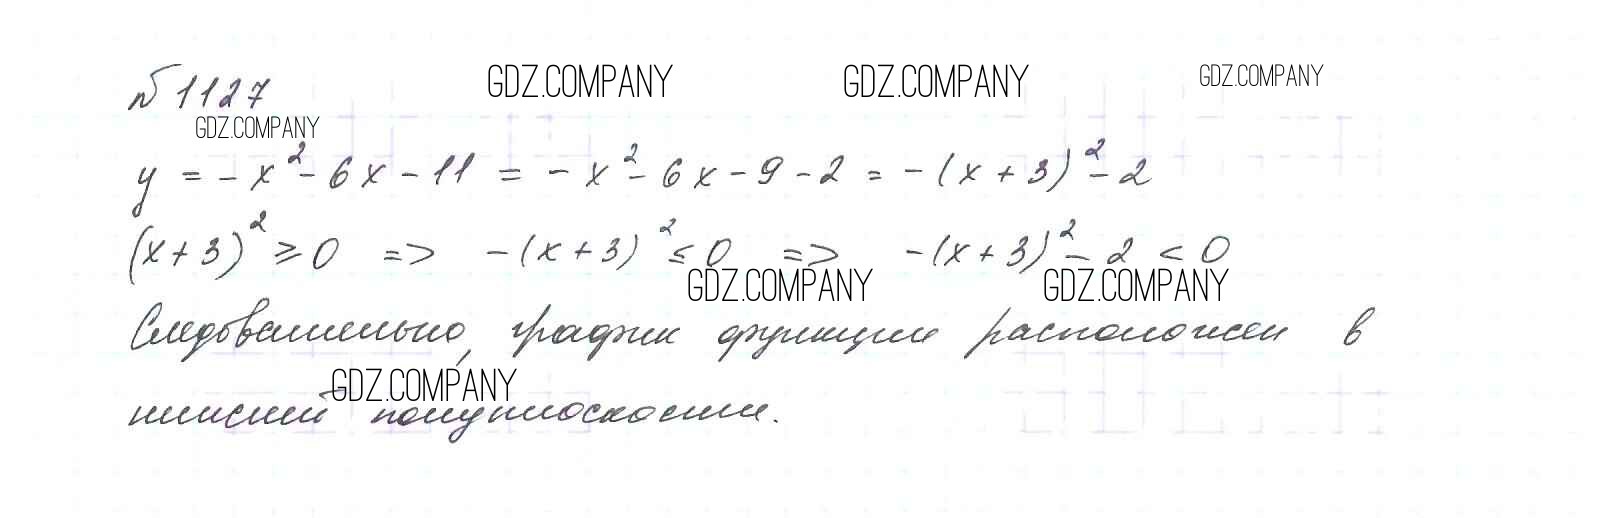 №1127
GDZ.COMPANY GDZ.COMPANY GDZ.COMPANY
GDZ.COMPANY
y = -x² - 6x - 11 = -x² - 6x - 9 - 2 = -(x + 3)² - 2
(x + 3)² ≥ 0 => -(x + 3)² ≤ 0 => -(x + 3)² - 2 < 0
GDZ.COMPANY GDZ.COMPANY
Следовательно, график функции расположен в
GDZ.COMPANY
нижней полуплоскости.